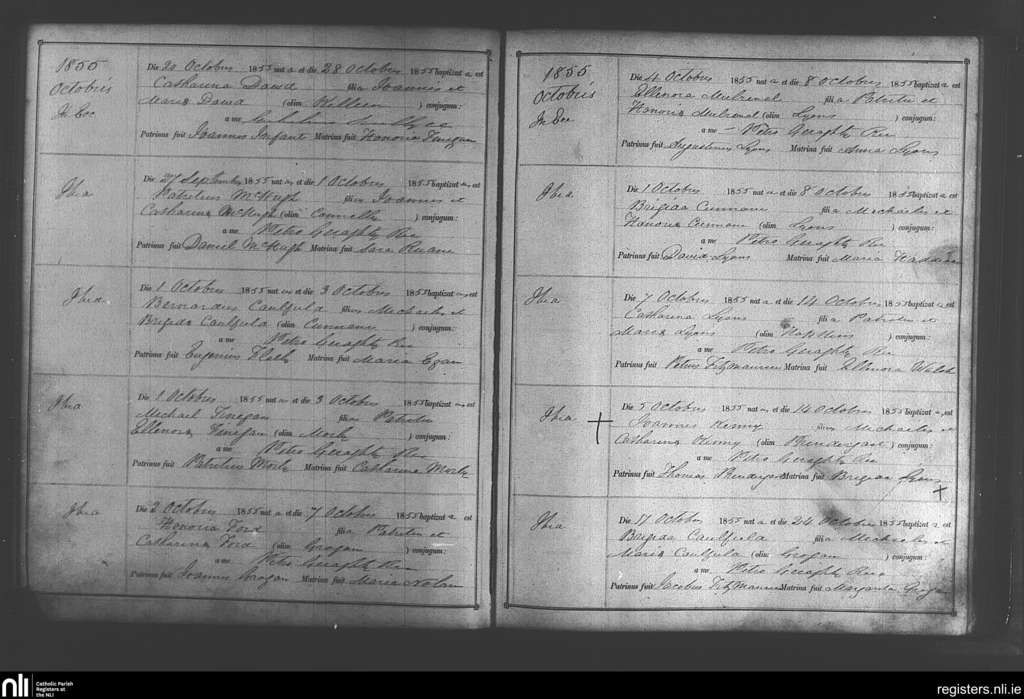 1855
Octobris
In Ecc
Die 20 Octobris 1855 nat a et die 28 Octobris 1855 baptizat a est
Catharina David filia Joannis et
Maria David (olim Killeen) conjugum:
a me
Patrinus fuit Joannes Infant Matrina fuit Honoria Finegan
Ibia
Die 27 Septembris 1855 nat us et die 1 Octobris 1855 baptizat us est
Patritius McHugh filius Joannis et
Catharina McHugh (olim Connelly) conjugum:
a me Petro Geraghty
Patrinus fuit Daniel McHugh Matrina fuit Sara Ruane
Ibid
Die 1 Octobris 1855 nat us et die 3 Octobris 1855 baptizat us est
Bernardus Caulfield filius Michaelis et
Brigida Caulfield (olim Cunnane) conjugum:
a me Petro Geraghty
Patrinus fuit Eugenius Matrina fuit Maria Egan
Ibia
Die 1 Octobris 1855 nat us et die 3 Octobris 1855 baptizat us est
Michael Finegan filius Patritii
Ellenora Finegan (olim Morly) conjugum:
a me Petro Geraghty
Patrinus fuit Patritius Morly Matrina fuit Catharina Morly
Ibia
Die 2 Octobris 1855 nat a et die 7 Octobris 1855 baptizat a est
Honoria Ford filia Patritii et
Catharina Ford (olim Grogan) conjugum:
a me Petro Geraghty
Patrinus fuit Joannes Grogan Matrina fuit Maria Nolan
1855
Octobris
In Ecc
Die 4 Octobris 1855 nat a et die 8 Octobris 1855 baptizat a est
Ellenora filia Patritii et
Honoria (olim Lyons) conjugum:
a me Petro Geraghty
Patrinus fuit Augustinus Lyons Matrina fuit Anna Lyons
Ibia
Die 1 Octobris 1855 nat a et die 8 Octobris 1855 baptizat a est
Brigida Cunnane filia Michaelis et
Honoria Cunnane (olim Lyons) conjugum:
a me Petro Geraghty
Patrinus fuit David Lyons Matrina fuit Maria
Ibia
Die 7 Octobris 1855 nat a et die 14 Octobris 1855 baptizat a est
Catharina Lyons filia Patritii et
Maria Lyons (olim Hopkins) conjugum:
a me Petro Geraghty
Patrinus fuit Petrus Fitzmaurice Matrina fuit Ellenora Walsh
Ibia
Die 5 Octobris 1855 nat us et die 14 Octobris 1855 baptizat us est
Joannes Kenny filius Michaelis et
Catharina Kenny (olim Prendergast) conjugum:
a me Petro Geraghty
Patrinus fuit Thomas Prendergast Matrina fuit Brigida Lyons
Ibia
Die 17 Octobris 1855 nat a et die 24 Octobris 1855 baptizat a est
Brigida Caulfield filia Michaelis et
Maria Caulfield (olim Grogan) conjugum:
a me Petro Geraghty
Patrinus fuit Jacobus Fitzmaurice Matrina fuit Margarita Grogan
nli Catholic Parish
Registers at
the NLI
registers.nli.ie